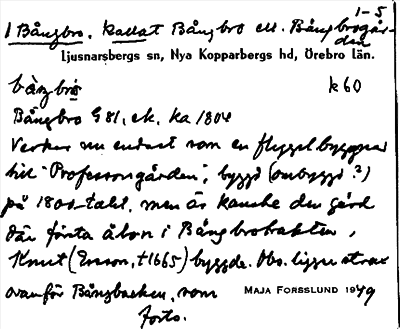 1-5
1 Bångbro, kallat Bångbro ell. Bångbrogår-
den
Ljusnarsbergs sn, Nya Kopparbergs hd, Örebro län.
båŋbrò k60
Bångbro G81, ek. ka 1804
Verkar nu endast som en flygel byggnad
till "Professorsgården", byggd (ombyggd?)
på 1800-talet, men är kanske den gård
där första åbon i Bångbrotrakten,
Knut (Ersson, †1665) byggde. Obs. ligger strax
ovanför Bångbacken, som MAJA FORSSLUND 1949
forts.